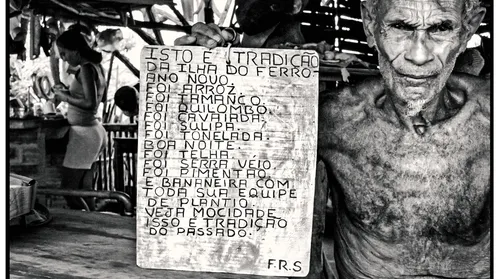 ISTO E TRADIÇÃO
DA ILHA DO FERRO-
ANO NOVO.
FOI ARROZ.
FOI TAMANCO.
FOI QUILOMBO.
FOI CAVAIADA.
FOI SULIPA.
FOI TONELADA.
BOA NOITE.
FOI TELHA.
FOI SERRA VÉIO
FOI PIMENTÃO.
E BANANEIRA COM
TODA SUA EQUIPE
DE PLANTIO.
VEJA MOCIDADE
ISSO E TRADIÇÃO
DO PASSADO.
F.R.S